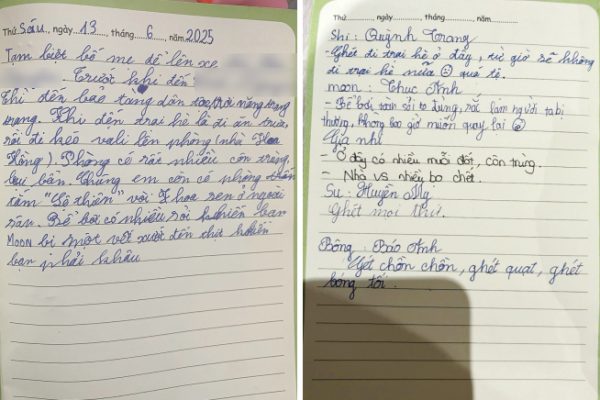 Thứ Sáu, ngày 13 tháng 6 năm 2025
Tạm biệt bố mẹ để lên xe
Trước khi đến:
Khi đến bảo tàng dân tộc, trời nắng
Khi đến trại hè là đi ăn trưa,
rồi đi kéo vali lên phòng (nhà Hoa
Hồng). Phòng có rất nhiều côn trùng,
bụi bẩn. Chúng em còn có phòng
tắm "Lộ thiên" với 1 hoa sen ở ngoài
sân. Bể bơi có nhiều sỏi khiến bạn
Moon bị một vết xước đến thịt khiến
bạn phải khâu
Thứ, ngày, tháng, năm
Shi: Quỳnh Trang
- Ghét đi trại hè ở đây, từ giờ sẽ không
đi trại hè nữa quá tệ.
moon: Thục Anh
- Bể bơi toàn sỏi to đùng, rất làm người ta bị
thương, không bao giờ muốn quay lại
Gia nhi
- Ở đây có nhiều muỗi đốt, côn trùng.
- Nhà vs nhiều bọ chết.
Su: Huyền My
Ghét mọi thứ.
Bông: Bảo Anh
Gét chồn chồn, ghét quạt, ghét
bóng tối.